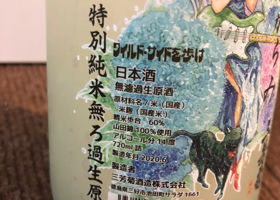 特別純米無ろ過生原
ワイルド・サイドを歩け
日本酒
無濾過生原酒
原材料名/米(国産)
米麹(国産米)
精米歩合 60%
山田錦100%使用
アルコール分14度
720ml詰
製造年月2020.6
製造者
三芳菊酒造株式会社
徳島県三好市池田町サラダ1661